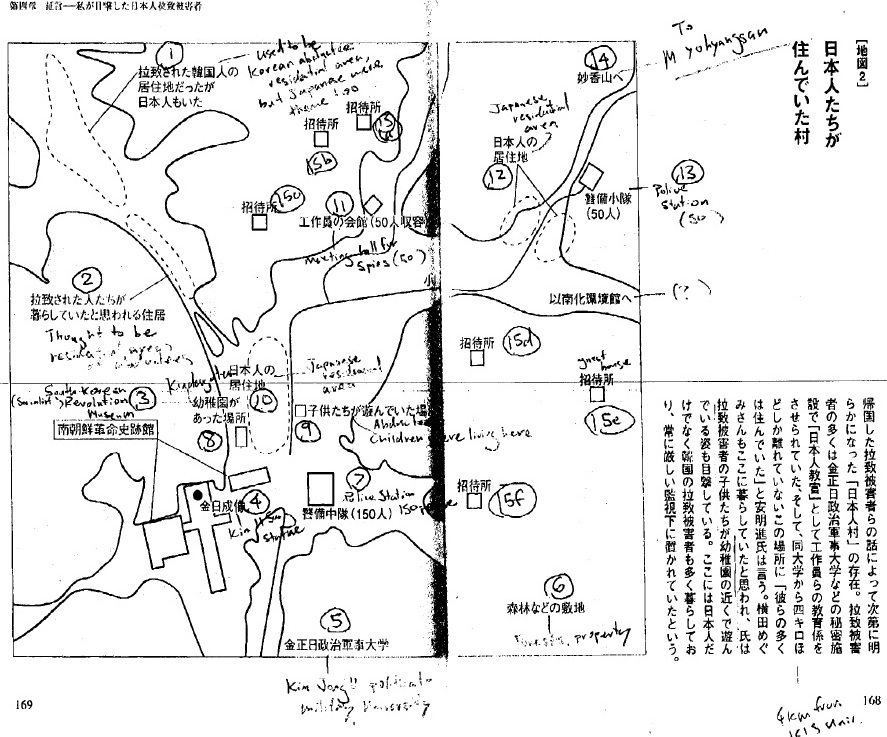 第四章 証言——私が目撃した日本人拉致被害者
[地図2]
日本人たちが
住んでいた村
To
M yohyangsan
①
拉致された韓国人の
居住地だったが
日本人もいた
used to be
Korean abductees
residential area,
but Japanese were
there too
招待所
15a
招待所
15b
招待所
15c
⑪
工作員の会館(50人収容)
meeting hall for
spies (50)
⑭
妙香山へ
Japanese
residential
area
日本人の
居住地
⑫
⑬
警備小隊
(50人)
Police
station
(50)
以南化環境館へ
(?)
②
拉致された人たちが
暮らしていたと思われる住居
Thought to be
招待所
15d
guest
house
招待所
15e
招待所
15f
日本人の
居住地
⑩
Japanese
residential
area
Kindergarten
幼稚園が
あった場所
⑧
South Korean
(Socialist) Revolution
Museum
③
南朝鮮革命史跡館
子供たちが遊んでいた場所
⑨
Children were living here
金日成像
④
Kim Il Sung
statue
⑦
警備中隊(150人)
Police Station
150
⑤
金正日政治軍事大学
Kim Jong Il political
military University
⑥
森林などの敷地
Forests, property
帰国した拉致被害者らの話によって次第に明
らかになった「日本人村」の存在。拉致被害
者の多くは金正日政治軍事大学などの秘密施
設で「日本人教官」として工作員らの教育係を
させられていた。そして、同大学から四キロほ
どしか離れていないこの場所に「彼らの多く
は住んでいた」と安明進氏は言う。横田めぐ
みさんもここに暮らしていたと思われ、氏は
拉致被害者の子供たちが幼稚園の近くで遊ん
でいる姿も目撃している。ここには日本人だ
けでなく韓国の拉致被害者も多く暮らしてお
り、常に厳しい監視下に置かれていたという。
4km from
KJS Univ.
169
168